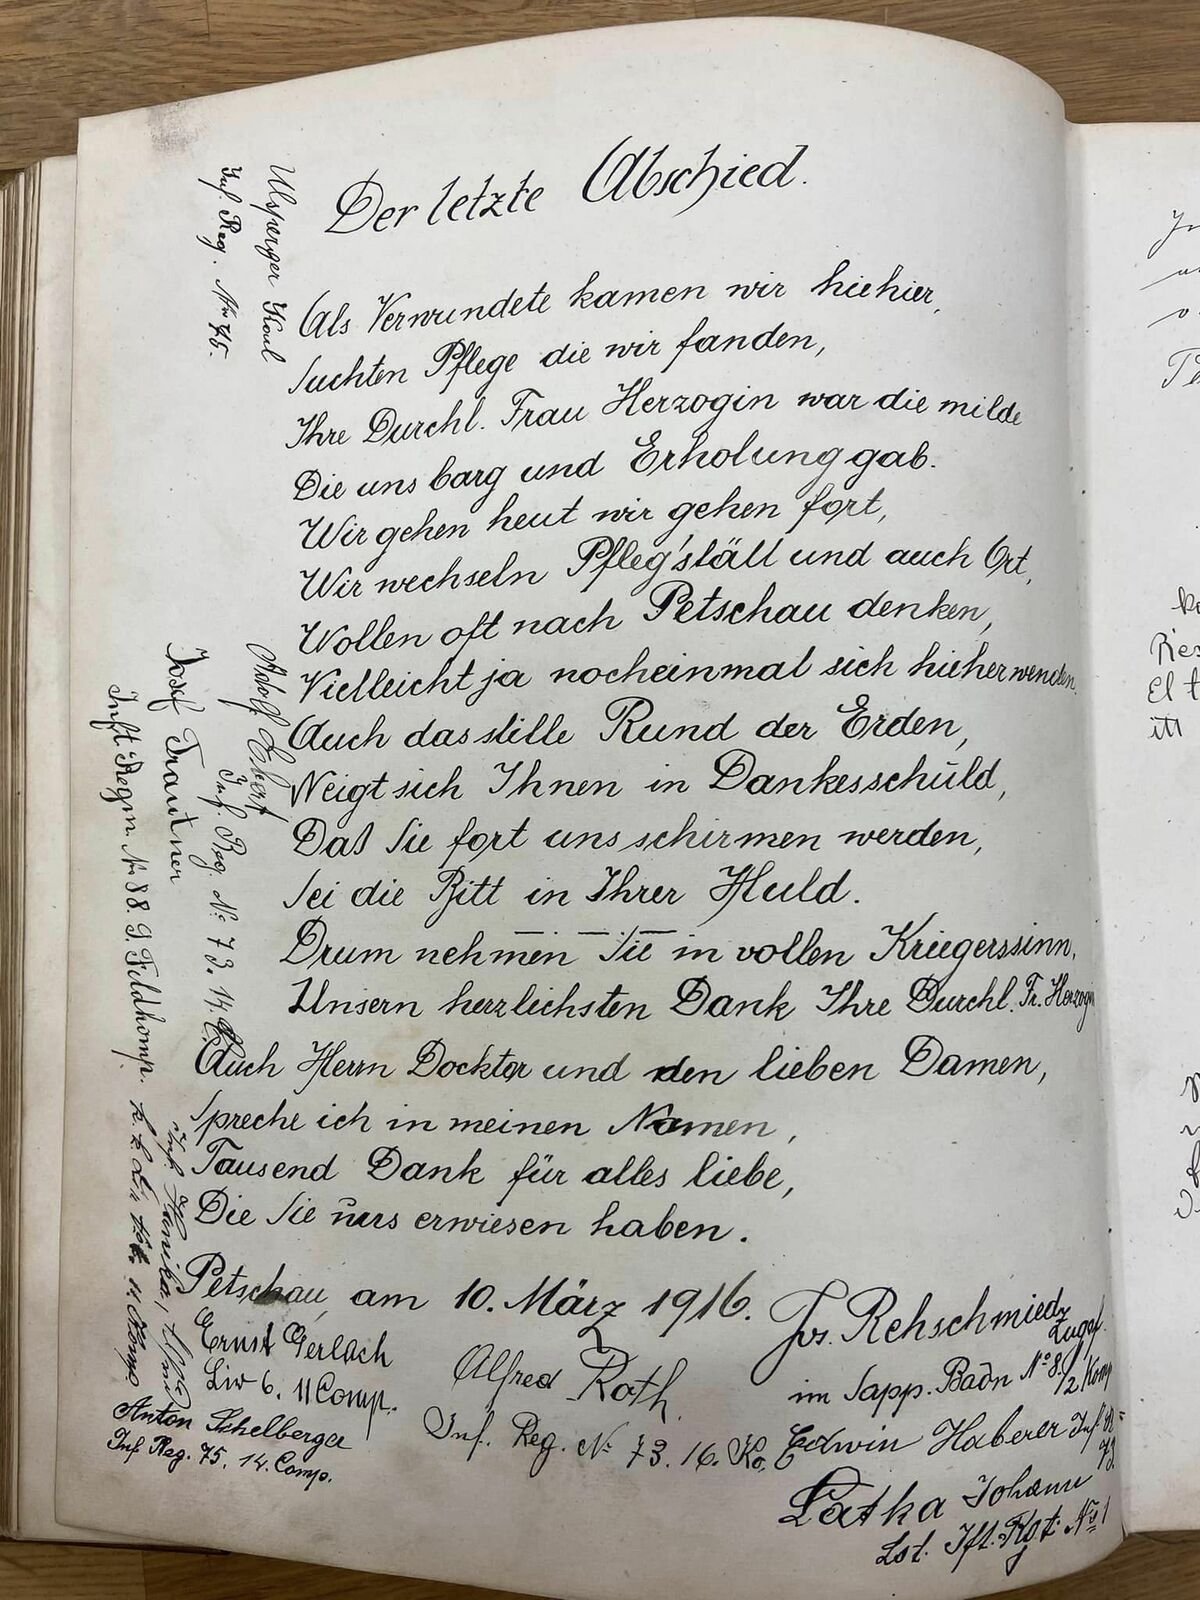 Der letzte Abschied.
Als Verwundete kamen wir hiehier,
suchten Pflege die wir fanden,
Ihre Durchl. Frau Herzogin war die milde
Die uns barg und Erholung gab.
Wir gehen heut wir gehen fort,
Wir wechseln Pfleg'stätt und auch Ort,
Wollen oft nach Petschau denken,
Vielleicht ja nocheinmal sich hieher wenden.
Auch das stille Rund der Erden,
Neigt sich Ihnen in Dankesschuld,
Daß Sie fort uns schirmen werden,
Sei die Bitt in Ihrer Huld.
Drum nehmen Sie in vollen Kriegerssinn,
Unsern herzlichsten Dank Ihre Durchl. Fr. Herzogin
Auch Herrn Docktor und den lieben Damen,
Spreche ich in meinen Namen,
Tausend Dank für alles liebe,
Die Sie uns erwiesen haben.
Petschau, am 10. März 1916.
Ernst Gerlach
Lir 6. 11 Comp.
Anton Schelberger
Inf Reg. 75. 14. Comp.
Alfred Roth
Inf. Reg. № 73. 16. Ko.
Jos. Rehschmied
Zugsf.
im Sapp. Baon № 8. /2. Komp
Edwin Haberer Inf R=
73
Latka Johann
Lst. Ift. Rgt. № 1
Ulsperger Karl
Inf. Reg. Nr 75.
Adolf Ebert,
Inf. Reg. № 73. 14.
Josef Trautner
Inft Regm. Nr 88. 9. Feldkomp.
Inf. Hanika,
k. k. 11. Komp.